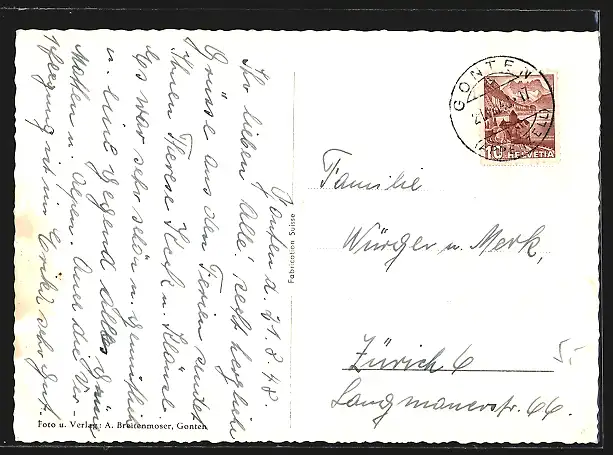 Gonten d. 21.8.48.
Ihr lieben Alle! recht herzliche
Grüsse aus den Ferien sendet
Ihnen Therese Heck u. Kläusel
Es war sehr schön u. gemütlich
u. eine Gegend alles Grüne
Matten u. Alpen. Auch die Ver-
pflegung ist im Bärli sehr gut.
Foto u. Verlag: A. Breitenmoser, Gonten
Fabrication Suisse
GONTEN
(APPENZELL)
10 HELVETIA
Familie
Würger u. Merk,
Zürich 6
Langmauerstr. 66.
5-